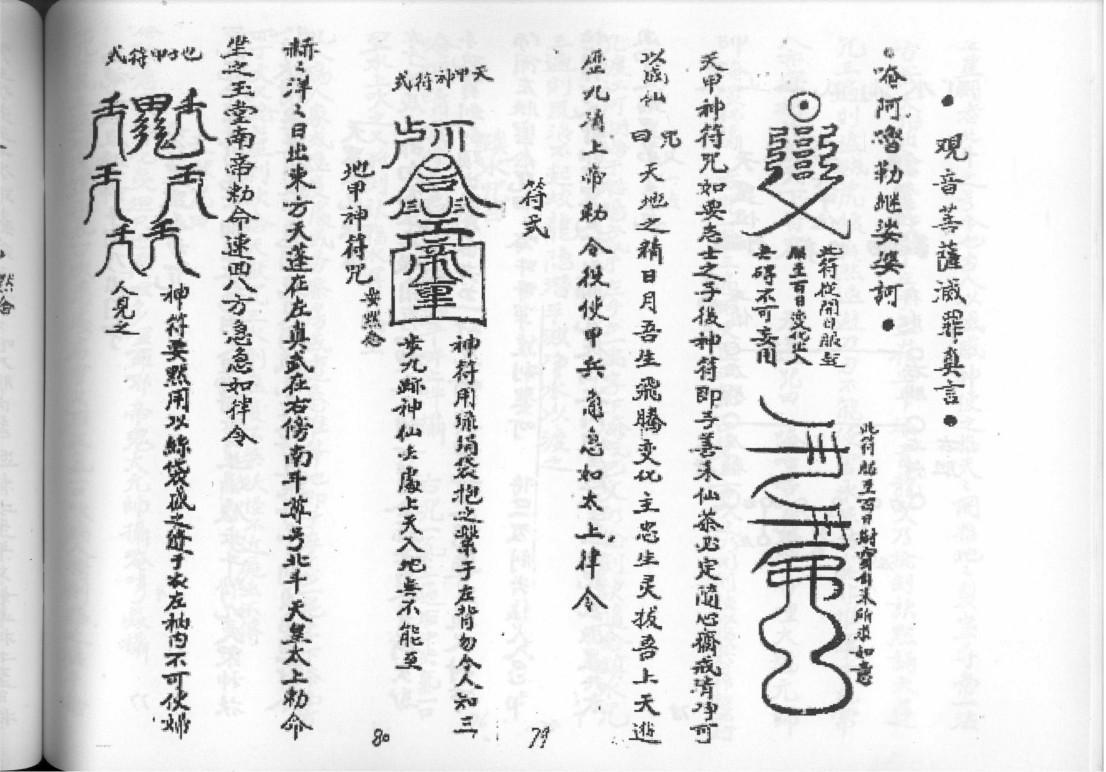 观音菩薩滅罪真言
唵阿嚕勒继娑婆訶
此符從開日服起
服至百日变化出人
無碍不可妄用
此符服至百日财寶自来所求如意
天甲神符咒如要志士之子後神符即子善未仙恭必定隨心齋戒清净可
以成仙
咒曰
天地之精日月吾生飛騰变化主忠生灵拔吾上天遊
歷九清上帝勅令役使甲兵急急如太上律令
79
符式
天甲神符式
神符用琉璃袋抱之繫于左背勿令人知三
步九跡神仙去處上天入地無不能至
地甲神符咒
要默念
80
赫々洋々日出東方天蓬在左真武在右傍南斗尊号北斗天皇太上勅命
坐之玉堂南帝勅命速西八方急急如律令
地甲符式
神符要默用以絲袋盛之縫于衣左袖内不可伙婦
人見之
默念